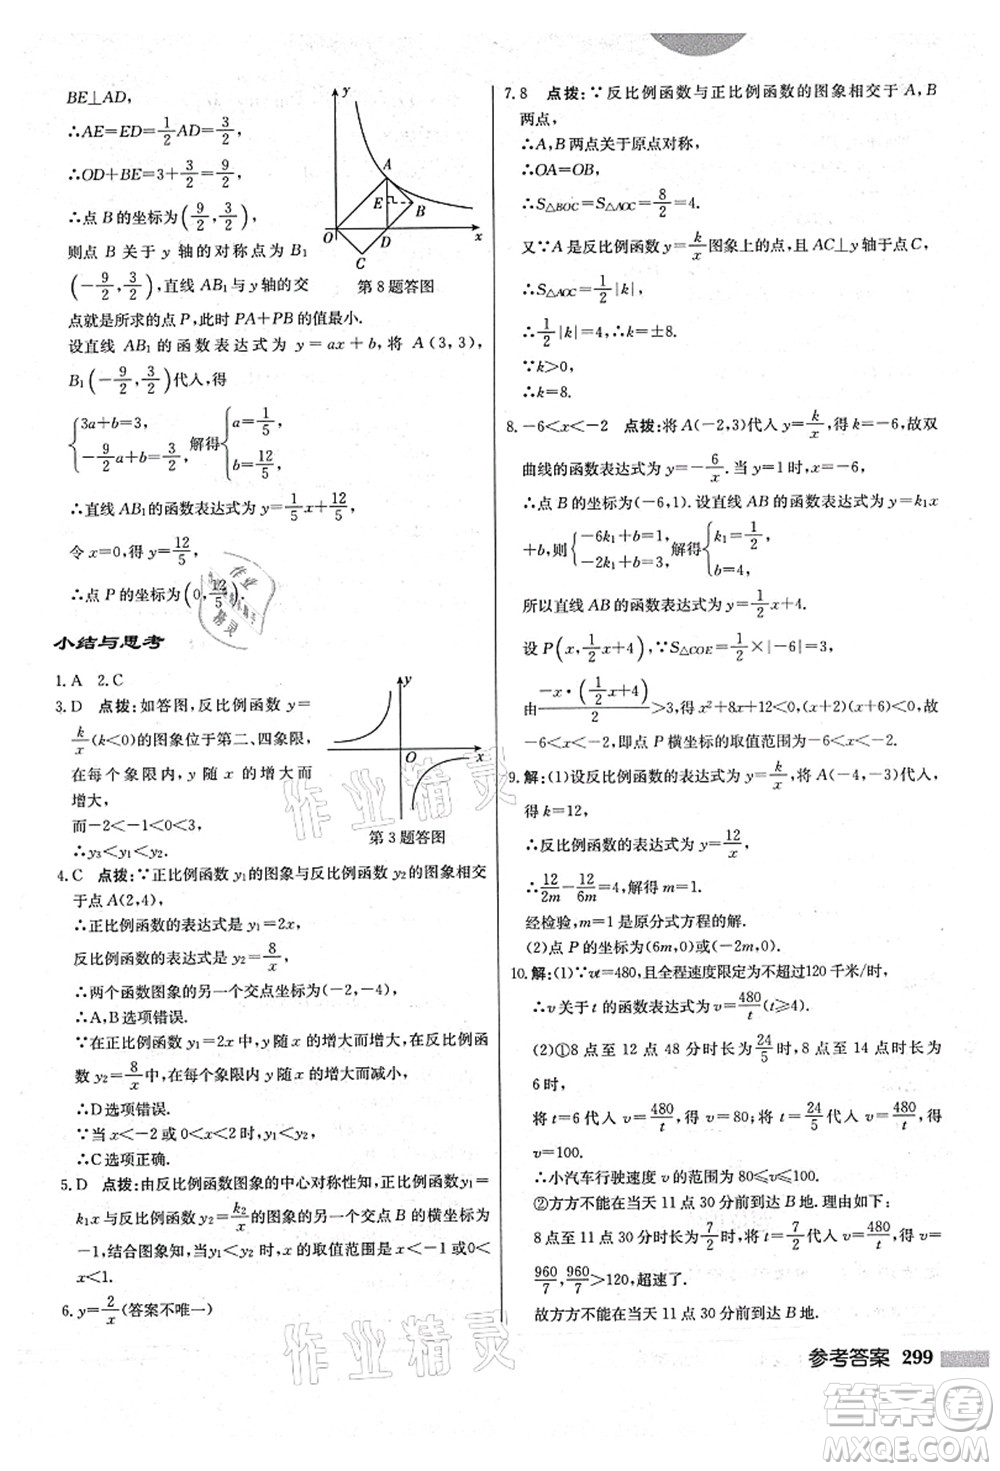 BE⊥AD,
∴AE=ED=1/2AD=3/2,
∴OD+BE=3+3/2=9/2,
∴点 B 的坐标为(9/2,3/2),
则点 B 关于 y 轴的对称点为 B₁
(-9/2,3/2),直线 AB₁ 与 y 轴的交
点就是所求的点 P,此时 PA+PB 的值最小.
y
A
E
B
O
D
x
C
第 8 题答图
设直线 AB₁ 的函数表达式为 y=ax+b,将 A(3,3),
B₁(-9/2,3/2)代入,得
{3a+b=3, -9/2a+b=3/2, 解得{a=1/5, b=12/5,
∴直线 AB₁ 的函数表达式为 y=1/5x+12/5,
令 x=0,得 y=12/5,
∴点 P 的坐标为(0,12/5).
小结与思考
1. A 2. C
3. D 点拨:如答图,反比例函数 y=
k/x(k<0)的图象位于第二、四象限,
在每个象限内,y 随 x 的增大而
增大,
而-2<-1<0<3,
∴y₃<y₁<y₂.
y
O
x
第 3 题答图
4. C 点拨:∵正比例函数 y₁ 的图象与反比例函数 y₂ 的图象相交
于点 A(2,4),
∴正比例函数的表达式是 y₁=2x,
反比例函数的表达式是 y₂=8/x,
∴两个函数图象的另一个交点为(-2,-4),
∴A,B 选项错误.
∵在正比例函数 y₁=2x 中,y 随 x 的增大而增大,在反比例
函数 y₂=8/x 中,在每个象限内 y 随 x 的增大而减小,
∴D 选项错误.
∵当 x<-2 或 0<x<2 时,y₁<y₂,
∴C 选项正确.
5. D 点拨:由反比例函数图象的中心对称性知,正比例函数 y₁=
k₁x 与反比例函数 y₂=k₂/x 的图象的另一个交点 B 的横坐标为
-1,结合图象知,当 y₁<y₂ 时,x 的取值范围是 x<-1 或 0<
x<1.
6. y=2/x(答案不唯一)
7. 8 点拨:∵反比例函数与正比例函数的图象相交于 A,B
两点,
∴A,B 两点关于原点对称,
∴OA=OB,
∴S△BOC=S△AOC=8/2=4.
又∵A 是反比例函数 y=k/x 图象上的点,且 AC⊥y 轴于点 C,
∴S△AOC=1/2|k|,
∴1/2|k|=4,∴k=±8.
∵k>0,
∴k=8.
8. -6<x<-2 点拨:将 A(-2,3)代入 y=k/x,得 k=-6,故双
曲线的函数表达式为 y=-6/x.当 y=1 时,x=-6,
∴点 B 的坐标为(-6,1).设直线 AB 的函数表达式为 y=k₁x
+b,则{-6k₁+b=1, -2k₁+b=3, 解得{k₁=1/2, b=4,
所以直线 AB 的函数表达式为 y=1/2x+4.
设 P(x,1/2x+4),∵S△COE=1/2×2×3=3,
由-x·(1/2x+4)/2>3,得 x²+8x+12<0,所以(x+2)(x+6)<0,故
-6<x<-2,即点 P 横坐标的取值范围为-6<x<-2.
9. 解:(1)设反比例函数的表达式为 y=k/x,将 A(-4,-3)代入,
得 k=12,
∴反比例函数的表达式为 y=12/x,
∴12/2m-12/6m=4,解得 m=1.
经检验,m=1 是原分式方程的解.
(2)点 P 的坐标为(6m,0)或(-2m,0).
10. 解:(1)∵vt=480,且全程速度限定为不超过120 千米/时,
∴v 关于 t 的函数表达式为 v=480/t(t≥4).
(2)①8 点至 12 点 48 分时长为24/5时,8 点至 14 点时长为
6 时,
将 t=6 代入 v=480/t,得 v=80;将 t=24/5代入 v=480/t,得
v=100.
∴小汽车行驶速度 v 的范围为 80≤v≤100.
②方方不能在当天 11 点 30 分前到达 B 地.理由如下:
8 点至 11 点 30 分时长为7/2时,将 t=7/2代入 v=480/t,得 v=
960/7,960/7>120,超速了.
故方方不能在当天 11 点 30 分前到达 B 地.
参考答案 299
作业精灵
作业精灵
作业精灵
答案卷
MXQE.COM